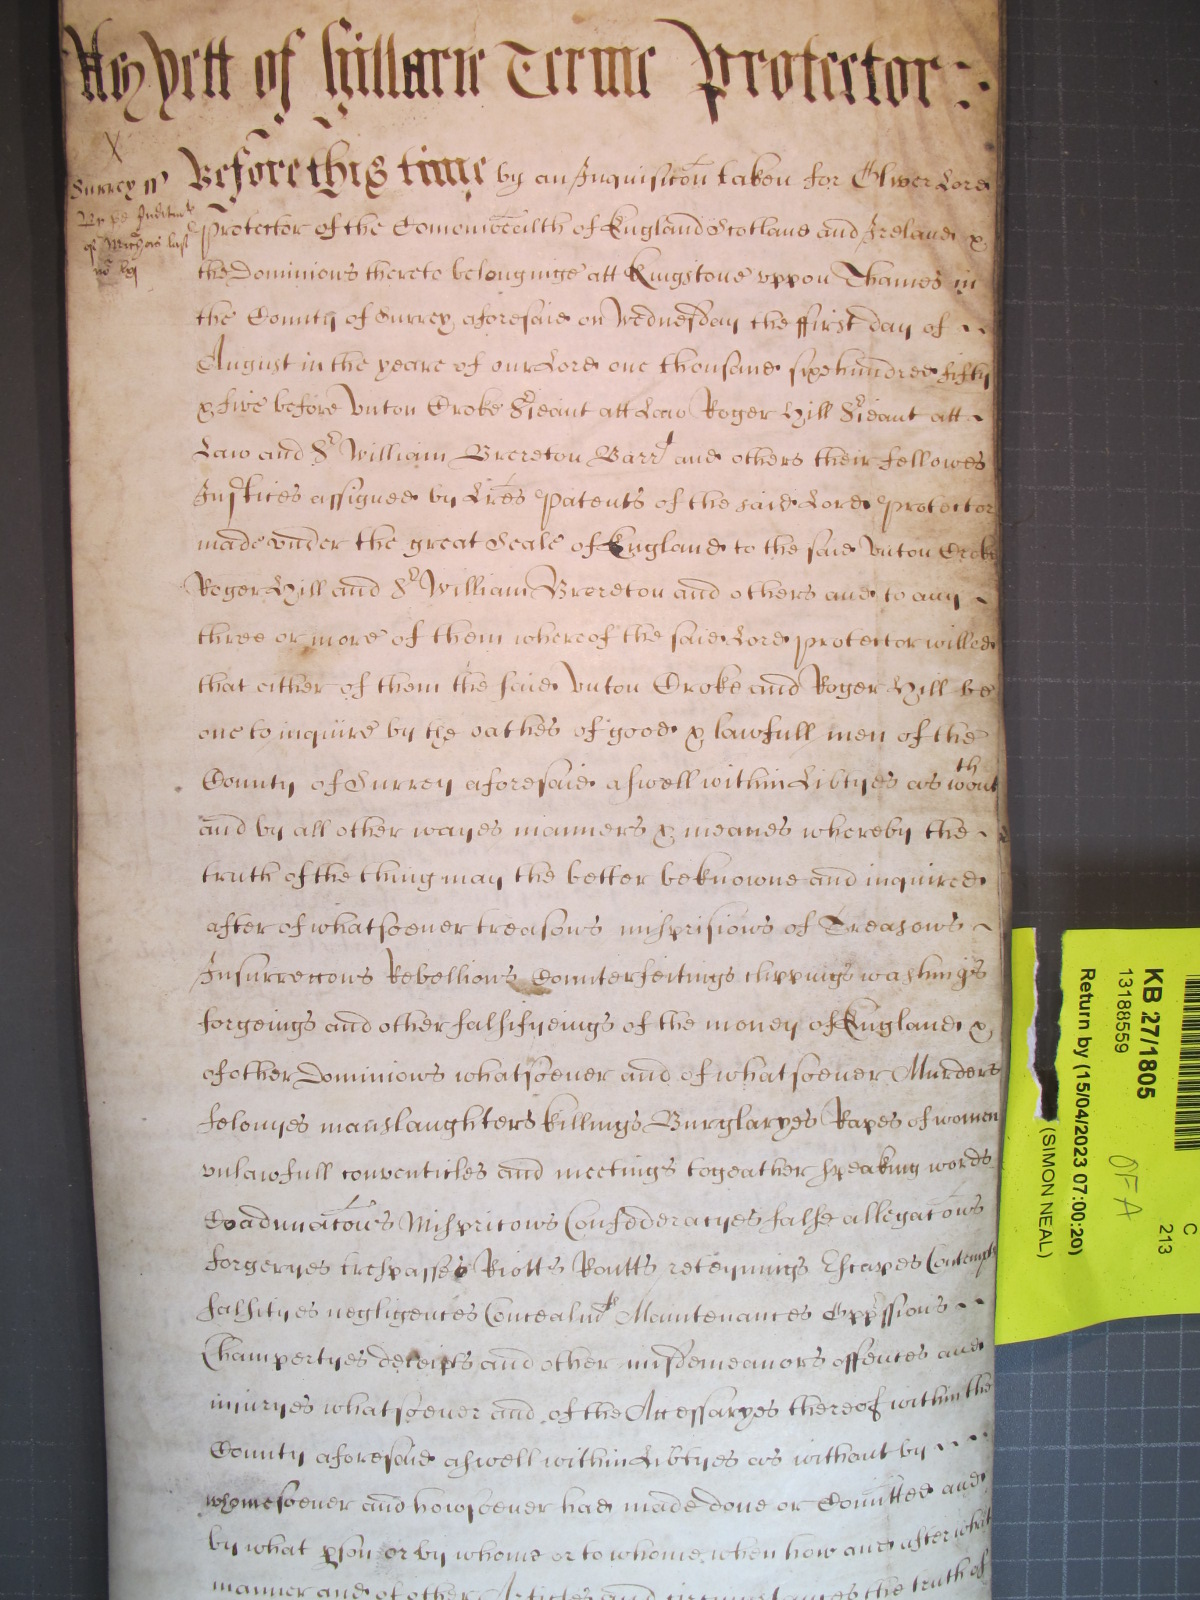 As yett of Hillarie Terme Protector
Surrey ss
of Michās last
Before this time by an Inquisicōn taken for Oliver Lord
Protector of the Comonwealth of England Scotland and Ireland &
the Dominions thereto belonginge att Kingstone uppon Thames in
the County of Surrey aforesaid on Wednesday the ffirst day of
August in the yeare of our Lord one thousand sixhundred fifty
& five before Unton Croke Srieant att Law Roger Hill Srieant att
Law and Sr William Brereton Barrt and others their fellowes
Justices assigned by Lres Patents of the said Lord Protector
made under the great Seale of England to the said Unton Croke
Roger Hill and Sr William Brereton and others and to any
three or more of them whereof the said Lord Protector willed
that either of them the said Unton Croke and Roger Hill be
one to inquire by the oathes of good & lawfull men of the
County of Surrey aforesaid aswell within Libtyes as wthout
and by all other wayes manners & meanes whereby the
truth of the thing may the better be knowne and inquired
after of whatsoever treasons misprisions of Treasons
Insurreccons Rebellions Counterfeitings clippings washings
forgeings and other falsifyeings of the money of England &
of other Dominions whatsoever and of whatsoever Murders
felonyes manslaughters killings Burglaryes Rapes of women
unlawfull conventicles and meetings togeather speaking words
Coadunacōns Mispricons Confedderacyes false allegacōns
forgeryes trespasses Riotts Routts reteynings Escapes Contempts
falsityes negligences Concealmts Maintenances Oppssions
Champertyes deceipts and other misdemeanors offences and
injuryes whatsoever and of the Accessaryes thereof within the
County aforesaid aswell within Libtyes as without by
whomesoever and howsoever had made done or Comitted and
by what pson or by whome or to whome when how and after what
manner and of other Articles and circumstances the truth of
KB 27/1805
13188559
Return by (15/04/2023 07:00:20)
(SIMON NEAL)
C
213
OFA